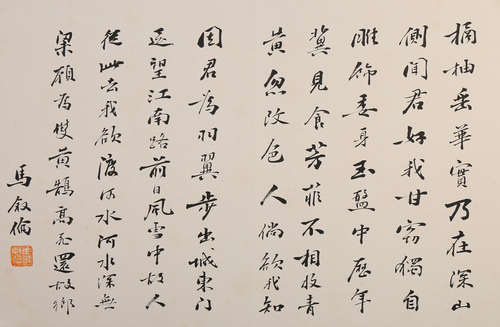 橘柚垂華實乃在深山
側聞君好我甘竊獨自
雕飾委身玉盤中歷年
冀見食芳菲不相投青
黃忽改色人倘欲我知
因君為羽翼步出城東门
遙望江南路前日風雪中故人
從此去我欲渡河水河水深無
梁願為雙黃鵠高飛還故鄉
馬敘倫